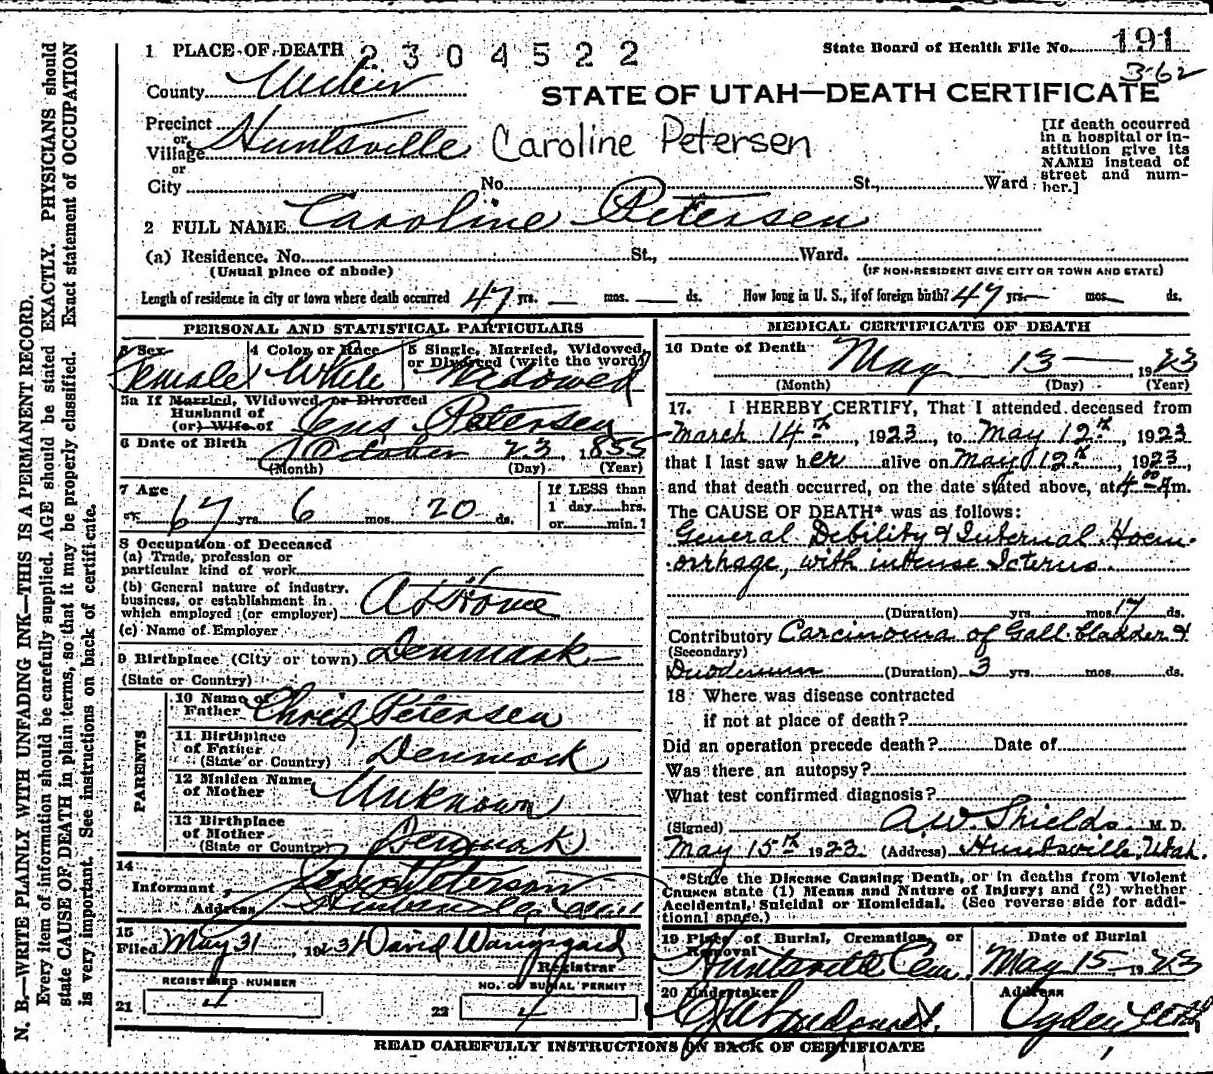 1 PLACE OF DEATH 2304522 State Board of Health File No. 191
362
County Weber
STATE OF UTAH—DEATH CERTIFICATE
Precinct
or
Village Huntsville Caroline Petersen
or
City No. St., Ward
[If death occurred
in a hospital or in-
stitution give its
NAME instead of
street and num-
ber.]
2 FULL NAME Caroline Petersen
(a) Residence. No. St., Ward.
(Usual place of abode) (IF NON-RESIDENT GIVE CITY OR TOWN AND STATE)
Length of residence in city or town where death occurred 47 yrs. — mos. — ds. How long in U. S., if of foreign birth? 47 yrs. — mos. — ds.
PERSONAL AND STATISTICAL PARTICULARS
3 Sex 4 Color or Race 5 Single, Married, Widowed,
or Divorced (write the word)
Female White Widowed
5a If Married, Widowed, or Divorced
Husband of
(or) Wife of Jens Petersen
6 Date of Birth October 23, 1855
(Month) (Day) (Year)
7 Age If LESS than
1 day hrs.
or min.?
67 yrs. 6 mos. 20 ds.
8 Occupation of Deceased
(a) Trade, profession or
particular kind of work
(b) General nature of industry,
business, or establishment in
which employed (or employer) At Home
(c) Name of Employer
9 Birthplace (City or town) Denmark
(State or Country)
PARENTS
10 Name of
Father Chris Petersen
11 Birthplace
of Father
(State or Country) Denmark
12 Maiden Name
of Mother Unknown
13 Birthplace
of Mother
(State or Country) Denmark
14
Informant Peterson
Address Huntsville
15
Filed May 31, 1923 David Wangsgard
Registrar
REGISTERED NUMBER NO. OF BURIAL PERMIT
21 4 22 4
MEDICAL CERTIFICATE OF DEATH
16 Date of Death May 13 — 1923
(Month) (Day) (Year)
17. I HEREBY CERTIFY, That I attended deceased from
March 14th, 1923, to May 12th, 1923
that I last saw her alive on May 12th, 1923,
and that death occurred, on the date stated above, at 4 00 A m.
The CAUSE OF DEATH* was as follows:
General Debility & Internal Hoem-
orrhage, with intense Icterus.
(Duration) yrs. mos. 17 ds.
Contributory Carcinoma of Gall bladder &
(Secondary)
Duodenum (Duration) 3 yrs. mos. ds.
18 Where was disease contracted
if not at place of death?
Did an operation precede death? Date of
Was there an autopsy?
What test confirmed diagnosis?
(Signed) A. W. Shields M. D.
May 15th 1923. (Address) Huntsville, Utah.
*State the Disease Causing Death, or in deaths from Violent
Causes state (1) Means and Nature of Injury; and (2) whether
Accidental, Suicidal or Homicidal. (See reverse side for addi-
tional space.)
19 Place of Burial, Cremation, or
Removal
Date of Burial
Huntsville Cem. May 15 — 1923
20 Undertaker Address
Ogden Utah
READ CAREFULLY INSTRUCTIONS ON BACK OF CERTIFICATE
N. B.—WRITE PLAINLY WITH UNFADING INK—THIS IS A PERMANENT RECORD.
Every item of information should be carefully supplied. AGE should be stated EXACTLY. PHYSICIANS should
state CAUSE OF DEATH in plain terms, so that it may be properly classified. Exact statement of OCCUPATION
is very important. See instructions on back of certificate.